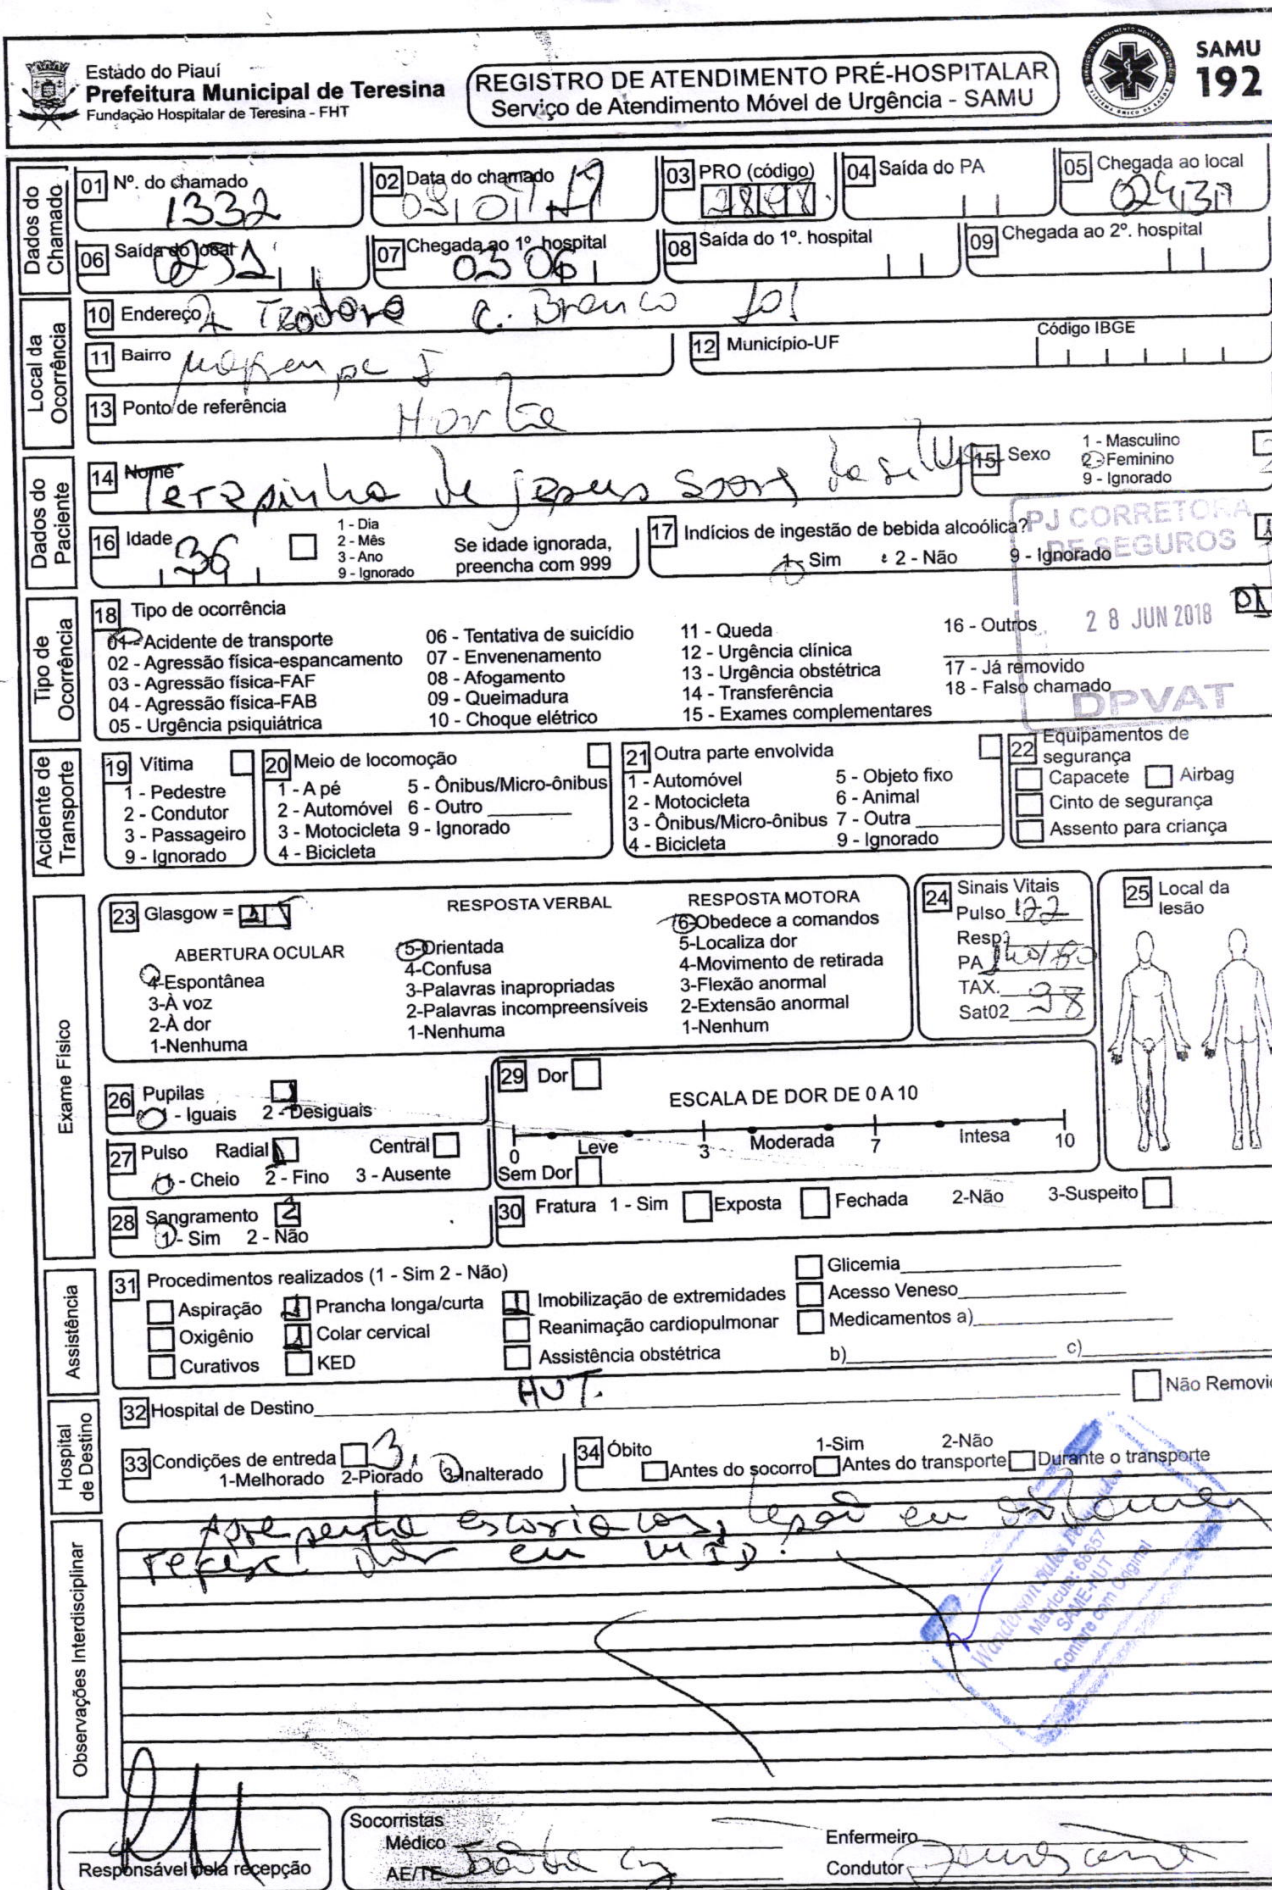 Estado do Piauí
Prefeitura Municipal de Teresina
Fundação Hospitalar de Teresina - FHT
REGISTRO DE ATENDIMENTO PRÉ-HOSPITALAR
Serviço de Atendimento Móvel de Urgência - SAMU
SAMU
192
Dados do Chamado
01 Nº. do chamado 1332
02 Data do chamado
03 PRO (código)
04 Saída do PA
05 Chegada ao local
06 Saída do local
07 Chegada ao 1º. hospital 0306
08 Saída do 1º. hospital
09 Chegada ao 2º. hospital
Local da Ocorrência
10 Endereço Teodoro C. Branco
11 Bairro
12 Município-UF
Código IBGE
13 Ponto de referência Horta
Dados do Paciente
14 Nome Terezinha de jesus da silva
15 Sexo
1 - Masculino
2 - Feminino
9 - Ignorado
16 Idade 36
1 - Dia
2 - Mês
3 - Ano
9 - Ignorado
Se idade ignorada, preencha com 999
17 Indícios de ingestão de bebida alcoólica?
1 - Sim 2 - Não 9 - Ignorado
PJ CORRETORA
DE SEGUROS
28 JUN 2018
DPVAT
Tipo de Ocorrência
18 Tipo de ocorrência 01
01 - Acidente de transporte
02 - Agressão física-espancamento
03 - Agressão física-FAF
04 - Agressão física-FAB
05 - Urgência psiquiátrica
06 - Tentativa de suicídio
07 - Envenenamento
08 - Afogamento
09 - Queimadura
10 - Choque elétrico
11 - Queda
12 - Urgência clínica
13 - Urgência obstétrica
14 - Transferência
15 - Exames complementares
16 - Outros
17 - Já removido
18 - Falso chamado
Acidente de Transporte
19 Vítima
1 - Pedestre
2 - Condutor
3 - Passageiro
9 - Ignorado
20 Meio de locomoção
1 - A pé
2 - Automóvel
3 - Motocicleta
4 - Bicicleta
5 - Ônibus/Micro-ônibus
6 - Outro
9 - Ignorado
21 Outra parte envolvida
1 - Automóvel
2 - Motocicleta
3 - Ônibus/Micro-ônibus
4 - Bicicleta
5 - Objeto fixo
6 - Animal
7 - Outra
9 - Ignorado
22 Equipamentos de segurança
Capacete Airbag
Cinto de segurança
Assento para criança
Exame Físico
23 Glasgow = 15
ABERTURA OCULAR
4-Espontânea
3-À voz
2-À dor
1-Nenhuma
RESPOSTA VERBAL
5-Orientada
4-Confusa
3-Palavras inapropriadas
2-Palavras incompreensíveis
1-Nenhuma
RESPOSTA MOTORA
6-Obedece a comandos
5-Localiza dor
4-Movimento de retirada
3-Flexão anormal
2-Extensão anormal
1-Nenhum
24 Sinais Vitais
Pulso 122
Resp.
PA 140/80
TAX.
Sat02 98
25 Local da lesão
26 Pupilas 1
1 - Iguais 2 - Desiguais
27 Pulso Radial 1 Central
1 - Cheio 2 - Fino 3 - Ausente
28 Sangramento
1 - Sim 2 - Não
29 Dor
ESCALA DE DOR DE 0 A 10
0 Leve 3 Moderada 7 Intesa 10
Sem Dor
30 Fratura 1 - Sim Exposta Fechada 2-Não 3-Suspeito
Assistência
31 Procedimentos realizados (1 - Sim 2 - Não)
Aspiração
Oxigênio
Curativos
1 Prancha longa/curta
1 Colar cervical
KED
1 Imobilização de extremidades
Reanimação cardiopulmonar
Assistência obstétrica
Glicemia
Acesso Veneso
Medicamentos a)
b) c)
Hospital de Destino
32 Hospital de Destino HUT.
Não Removid
33 Condições de entreda 3
1-Melhorado 2-Piorado 3-Inalterado
34 Óbito 1-Sim 2-Não
Antes do socorro Antes do transporte Durante o transporte
Observações Interdisciplinar
Apresenta escoriações, lesão em
refere dor em MID.
Matrícula: 68657
SAME-HUT
Confere com Original
Responsável pela recepção
Socorristas
Médico
AE/TE
Enfermeiro
Condutor